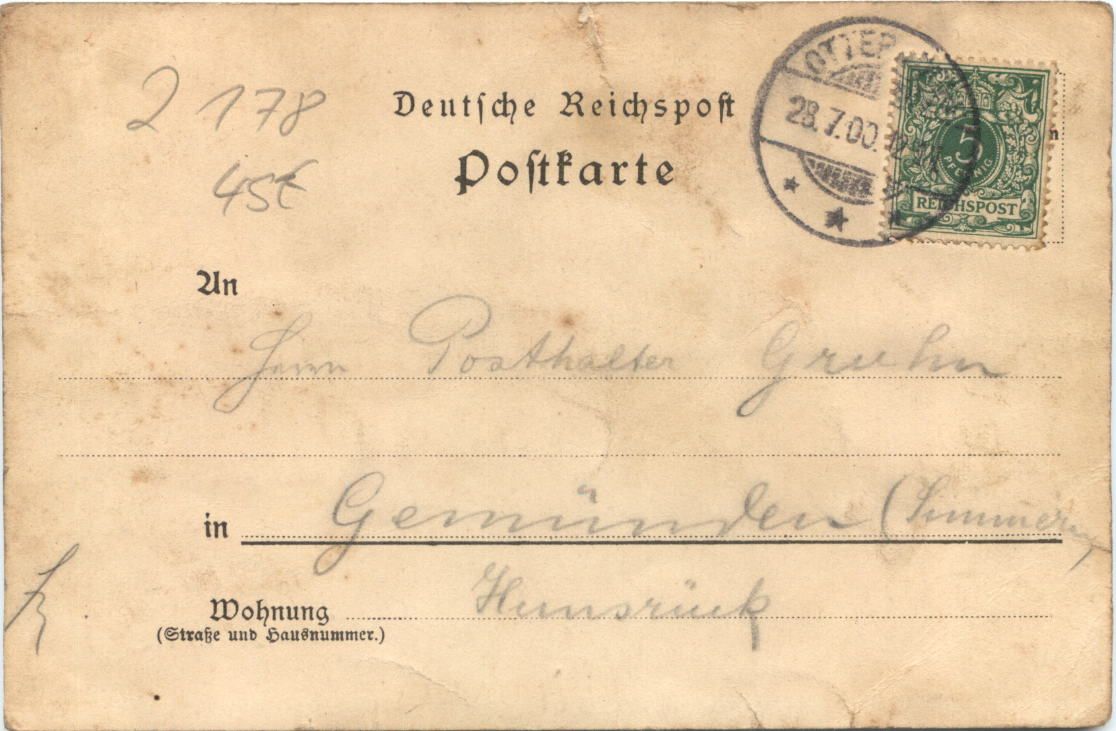 2 178
45€
Deutsche Reichspost
Postkarte
OTTER
28.7.00.
5
PFENNIG
REICHSPOST
n
An
Herrn Posthalter Gruhn
in Gemünden (Simmern)
Hunsrück
Wohnung
(Straße und Hausnummer.)